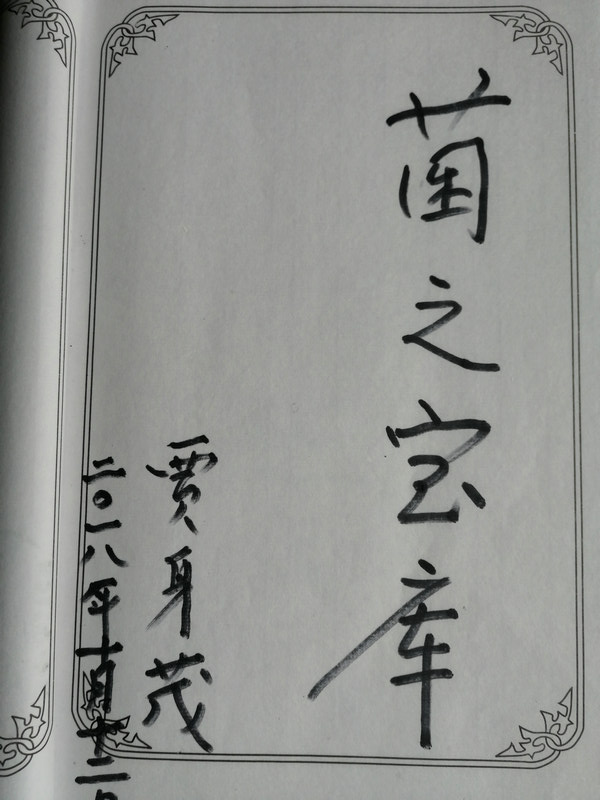 菌之宝库
贾身茂
二〇一八年十月十二日